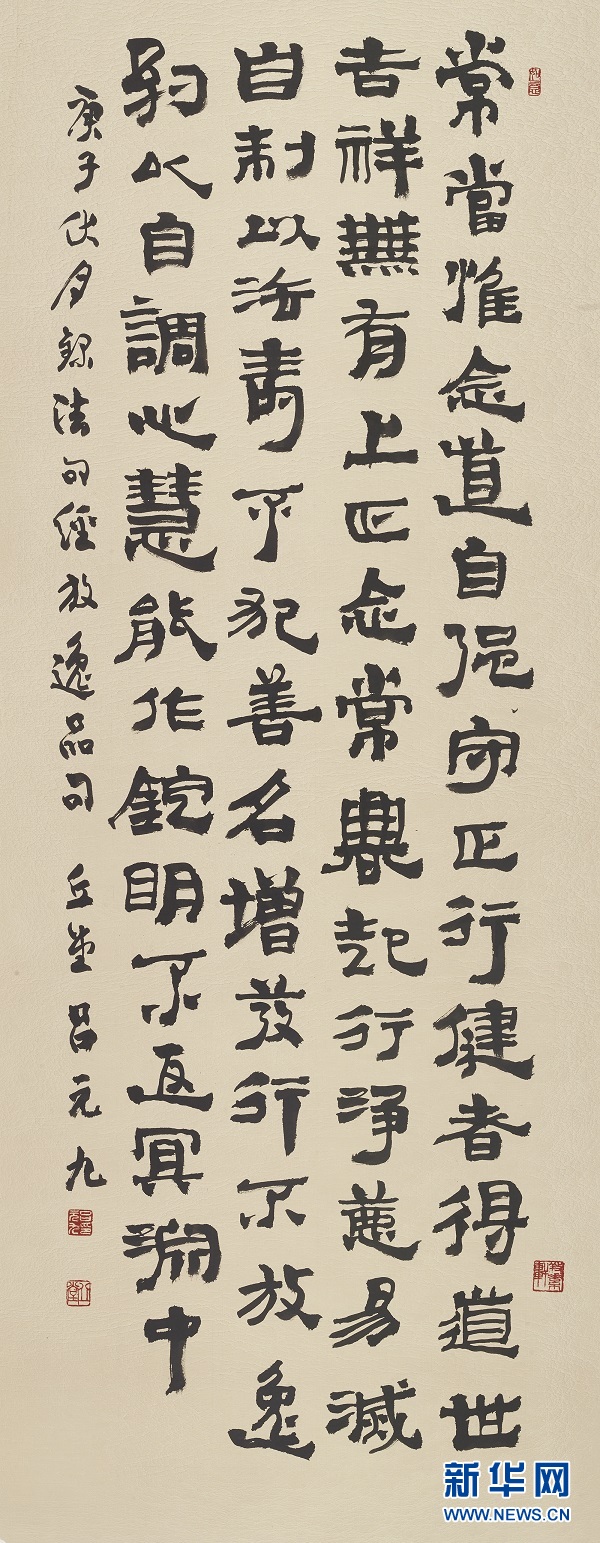 常當惟念道自强守正行健者得道世
吉祥無有上正念常興起行淨惡易滅
自制以法壽不犯善名增發行不放逸
約以自調心慧能作錠明不返冥淵中
庚子伏月録法句經放逸品句 丘堂吕元九
新华网
WWW.NEWS.CN